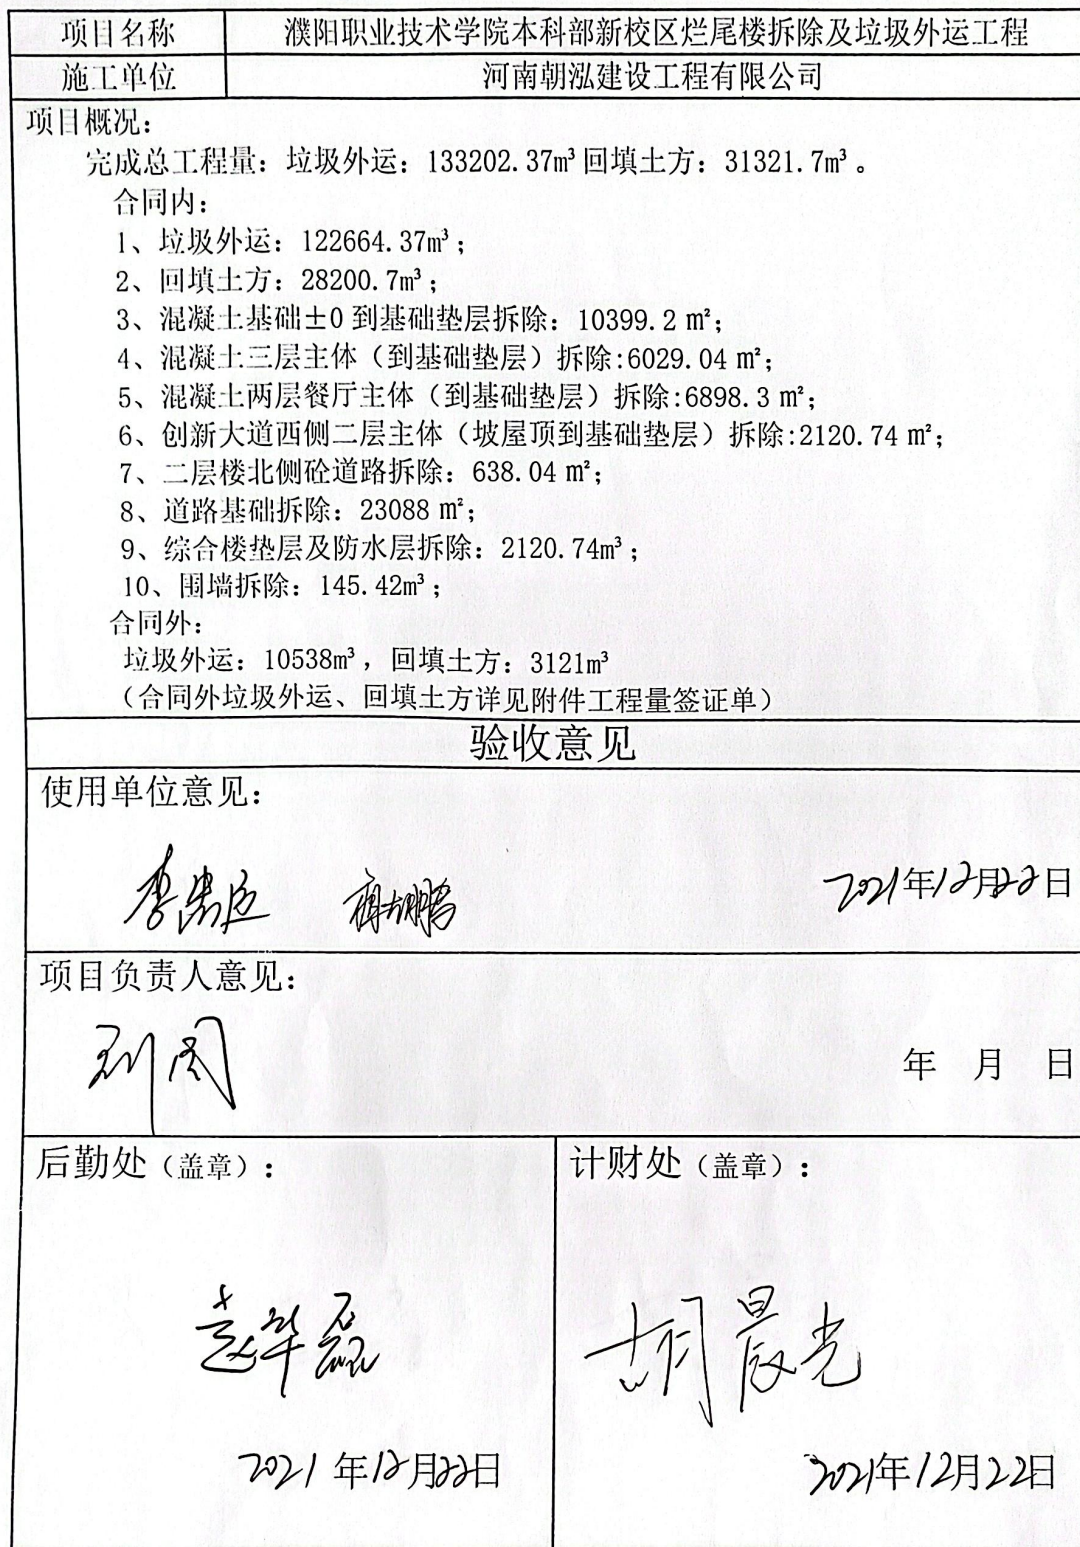 项目名称 濮阳职业技术学院本科部新校区烂尾楼拆除及垃圾外运工程
施工单位 河南朝泓建设工程有限公司
项目概况：
完成总工程量：垃圾外运：133202.37m³ 回填土方：31321.7m³。
合同内：
1、垃圾外运：122664.37m³；
2、回填土方：28200.7m³；
3、混凝土基础±0 到基础垫层拆除：10399.2 m²；
4、混凝土三层主体（到基础垫层）拆除:6029.04 m²；
5、混凝土两层餐厅主体（到基础垫层）拆除:6898.3 m²；
6、创新大道西侧二层主体（坡屋顶到基础垫层）拆除:2120.74 m²；
7、二层楼北侧砼道路拆除：638.04 m²；
8、道路基础拆除：23088 m²；
9、综合楼垫层及防水层拆除：2120.74m³；
10、围墙拆除：145.42m³；
合同外：
垃圾外运：10538m³，回填土方：3121m³
（合同外垃圾外运、回填土方详见附件工程量签证单）
验收意见
使用单位意见：
2021年12月22日
项目负责人意见：
年 月 日
后勤处（盖章）： 计财处（盖章）：
赵华磊 胡晨光
2021年12月22日 2021年12月22日